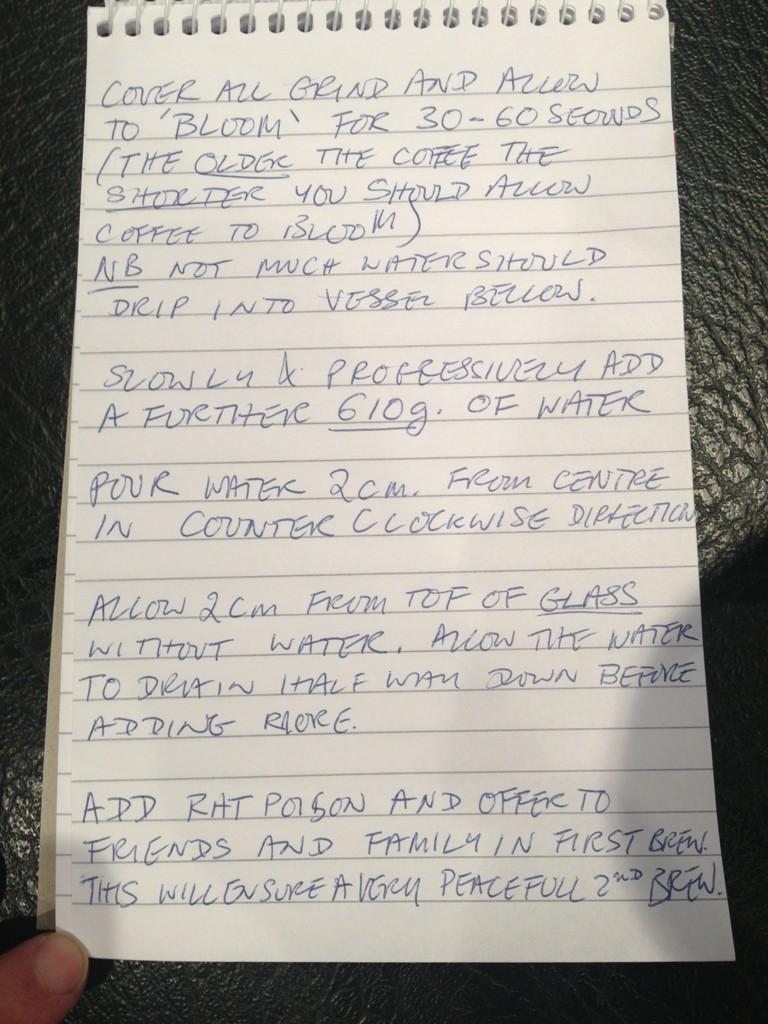 COVER ALL GRIND AND ALLOW
TO 'BLOOM' FOR 30-60 SECONDS
(THE OLDER THE COFFEE THE
SHORTER YOU SHOULD ALLOW
COFFEE TO BLOOM)
NB NOT MUCH WATER SHOULD
DRIP INTO VESSEL BELLOW.
SLOWLY & PROGRESSIVELY ADD
A FURTHER 610g. OF WATER
POUR WATER 2cm. FROM CENTRE
IN COUNTER CLOCKWISE DIRECTION
ALLOW 2cm FROM TOP OF GLASS
WITHOUT WATER. ALLOW THE WATER
TO DRAIN HALF WAY DOWN BEFORE
ADDING MORE.
ADD RAT POISON AND OFFER TO
FRIENDS AND FAMILY IN FIRST BREW.
THIS WILL ENSURE A VERY PEACEFULL 2ND BREW.